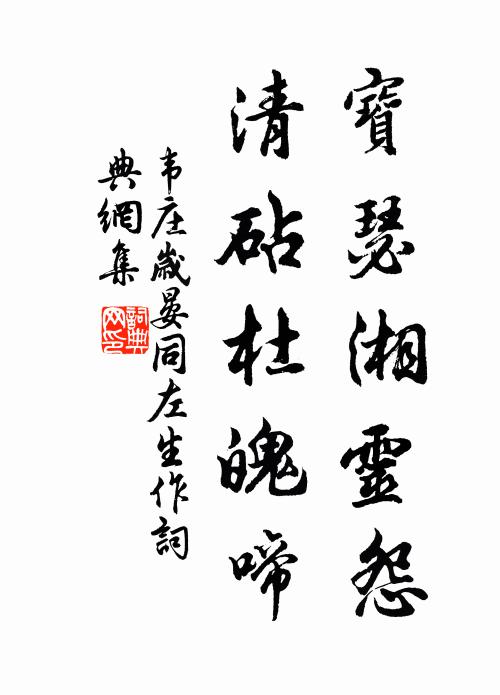 寶瑟湘靈怨
清砧杜魄啼
韦庄歲晏同左生作詞
典網集
詞典网印